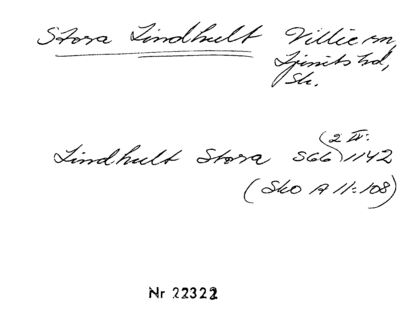 Stora Lindhult Villie sn,
Ljunits hd,
Sk.
2 IV:
Lindhult Stora SGG 1142
(Sko A II:108)
Nr 22322